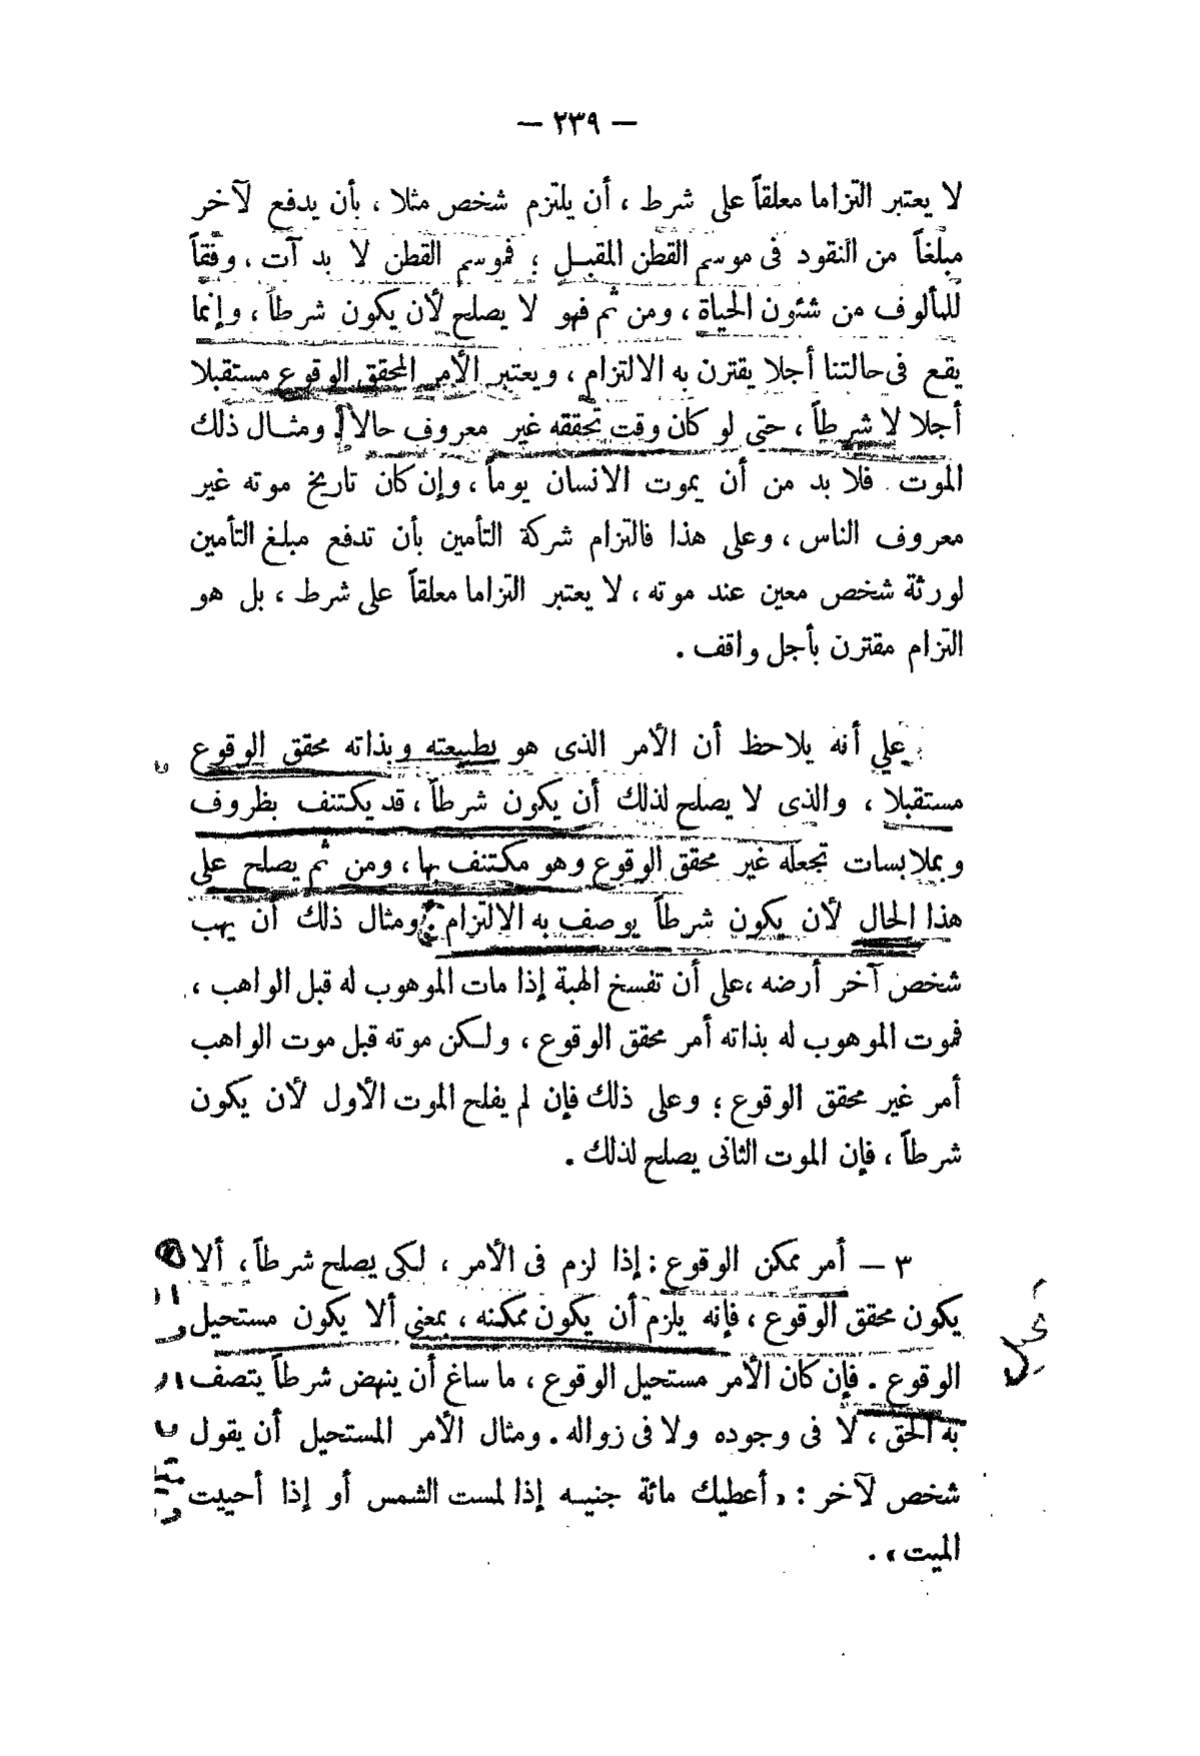 — ٢٣٩ —
لا يعتبر التزاما معلقاً على شرط ، أن يلتزم شخص مثلا ، بأن يدفع لآخر
مبلغاً من النقود فى موسم القطن المقبل ؛ فموسم القطن لا بد آت ، وفقاً
للمألوف من شئون الحياة ، ومن ثم فهو لا يصلح لأن يكون شرطاً ، وإنما
يقع فى حالتنا أجلا يقترن به الالتزام ، ويعتبر الأمر المحقق الوقوع مستقبلا
أجلا لا شرطاً ، حتى لو كان وقت تحققه غير معروف حالا . ومثال ذلك
الموت . فلا بد من أن يموت الانسان يوماً ، وإن كان تاريخ موته غير
معروف الناس ، وعلى هذا فالتزام شركة التأمين بأن تدفع مبلغ التأمين
لورثة شخص معين عند موته ، لا يعتبر التزاما معلقاً على شرط ، بل هو
التزام مقترن بأجل واقف .
على أنه يلاحظ أن الأمر الذى هو بطبيعته وبذاته محقق الوقوع
مستقبلا ، والذى لا يصلح لذلك أن يكون شرطاً ، قد يكتنف بظروف
وبملابسات تجعله غير محقق الوقوع وهو مكتنف بها ، ومن ثم يصلح على
هذا الحال لأن يكون شرطاً يوصف به الالتزام . ومثال ذلك أن يهب
شخص آخر أرضه ، على أن تفسخ الهبة إذا مات الموهوب له قبل الواهب ،
فموت الموهوب له بذاته أمر محقق الوقوع ، ولكن موته قبل موت الواهب
أمر غير محقق الوقوع ؛ وعلى ذلك فإن لم يفلح الموت الأول لأن يكون
شرطاً ، فإن الموت الثانى يصلح لذلك .
٣ — أمر ممكن الوقوع : إذا لزم فى الأمر ، لكى يصلح شرطاً ، ألا
يكون محقق الوقوع ، فإنه يلزم أن يكون ممكنه ، بمعنى ألا يكون مستحيل
الوقوع . فإن كان الأمر مستحيل الوقوع ، ما ساغ أن ينهض شرطاً يتصف
به الحق ، لا فى وجوده ولا فى زواله . ومثال الأمر المستحيل أن يقول
شخص لآخر : « أعطيك مائة جنيه إذا لمست الشمس أو إذا أحييت
الميت » .